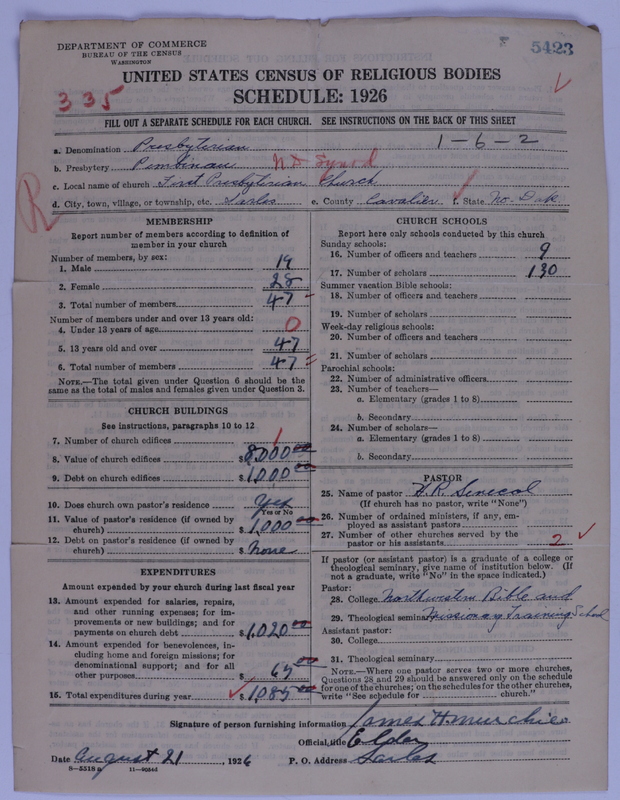 DEPARTMENT OF COMMERCE
BUREAU OF THE CENSUS
WASHINGTON
5423
UNITED STATES CENSUS OF RELIGIOUS BODIES
SCHEDULE: 1926
335
FILL OUT A SEPARATE SCHEDULE FOR EACH CHURCH. SEE INSTRUCTIONS ON THE BACK OF THIS SHEET
1-6-2
a. Denomination Presbyterian
b. Presbytery Pembinaw ND Synod
c. Local name of church First Presbyterian Church
d. City, town, village, or township, etc. Sarles e. County Cavalier f. State No. Dak
R
MEMBERSHIP
Report number of members according to definition of
member in your church
Number of members, by sex:
1. Male 19
2. Female 28
3. Total number of members 47
Number of members under and over 13 years old:
4. Under 13 years of age 0
5. 13 years old and over 47
6. Total number of members 47
NOTE.—The total given under Question 6 should be the
same as the total of males and females given under Question 3.
CHURCH BUILDINGS
See instructions, paragraphs 10 to 12
7. Number of church edifices 1
8. Value of church edifices $8,000 00
9. Debt on church edifices $1,000 00
10. Does church own pastor's residence Yes
Yes or No
11. Value of pastor's residence (if owned by
church) $1,000 00
12. Debt on pastor's residence (if owned by
church) $ None
EXPENDITURES
Amount expended by your church during last fiscal year
13. Amount expended for salaries, repairs,
and other running expenses; for im-
provements or new buildings; and for
payments on church debt $1,020 00
14. Amount expended for benevolences, in-
cluding home and foreign missions; for
denominational support; and for all
other purposes $ 65 00
15. Total expenditures during year $1,085 00
CHURCH SCHOOLS
Report here only schools conducted by this church
Sunday schools:
16. Number of officers and teachers 9
17. Number of scholars 130
Summer vacation Bible schools:
18. Number of officers and teachers
19. Number of scholars
Week-day religious schools:
20. Number of officers and teachers
21. Number of scholars
Parochial schools:
22. Number of administrative officers
23. Number of teachers—
a. Elementary (grades 1 to 8)
b. Secondary
24. Number of scholars—
a. Elementary (grades 1 to 8)
b. Secondary
PASTOR
25. Name of pastor H. R. Senecal
(If church has no pastor, write "None")
26. Number of ordained ministers, if any, em-
ployed as assistant pastors
27. Number of other churches served by the
pastor or his assistants 2
If pastor (or assistant pastor) is a graduate of a college or
theological seminary, give name of institution below. (If
not a graduate, write "No" in the space indicated.)
Pastor:
28. College Northwestern Bible and
29. Theological seminary Missionary Training School
Assistant pastor:
30. College
31. Theological seminary
NOTE.—Where one pastor serves two or more churches,
Questions 28 and 29 should be answered only on the schedule
for one of the churches; on the schedules for the other churches,
write "See schedule for church."
Signature of person furnishing information James H. Murchie
Official title Elder
Date August 21, 1926 P. O. Address Sarles
8-5518a 11-9054d